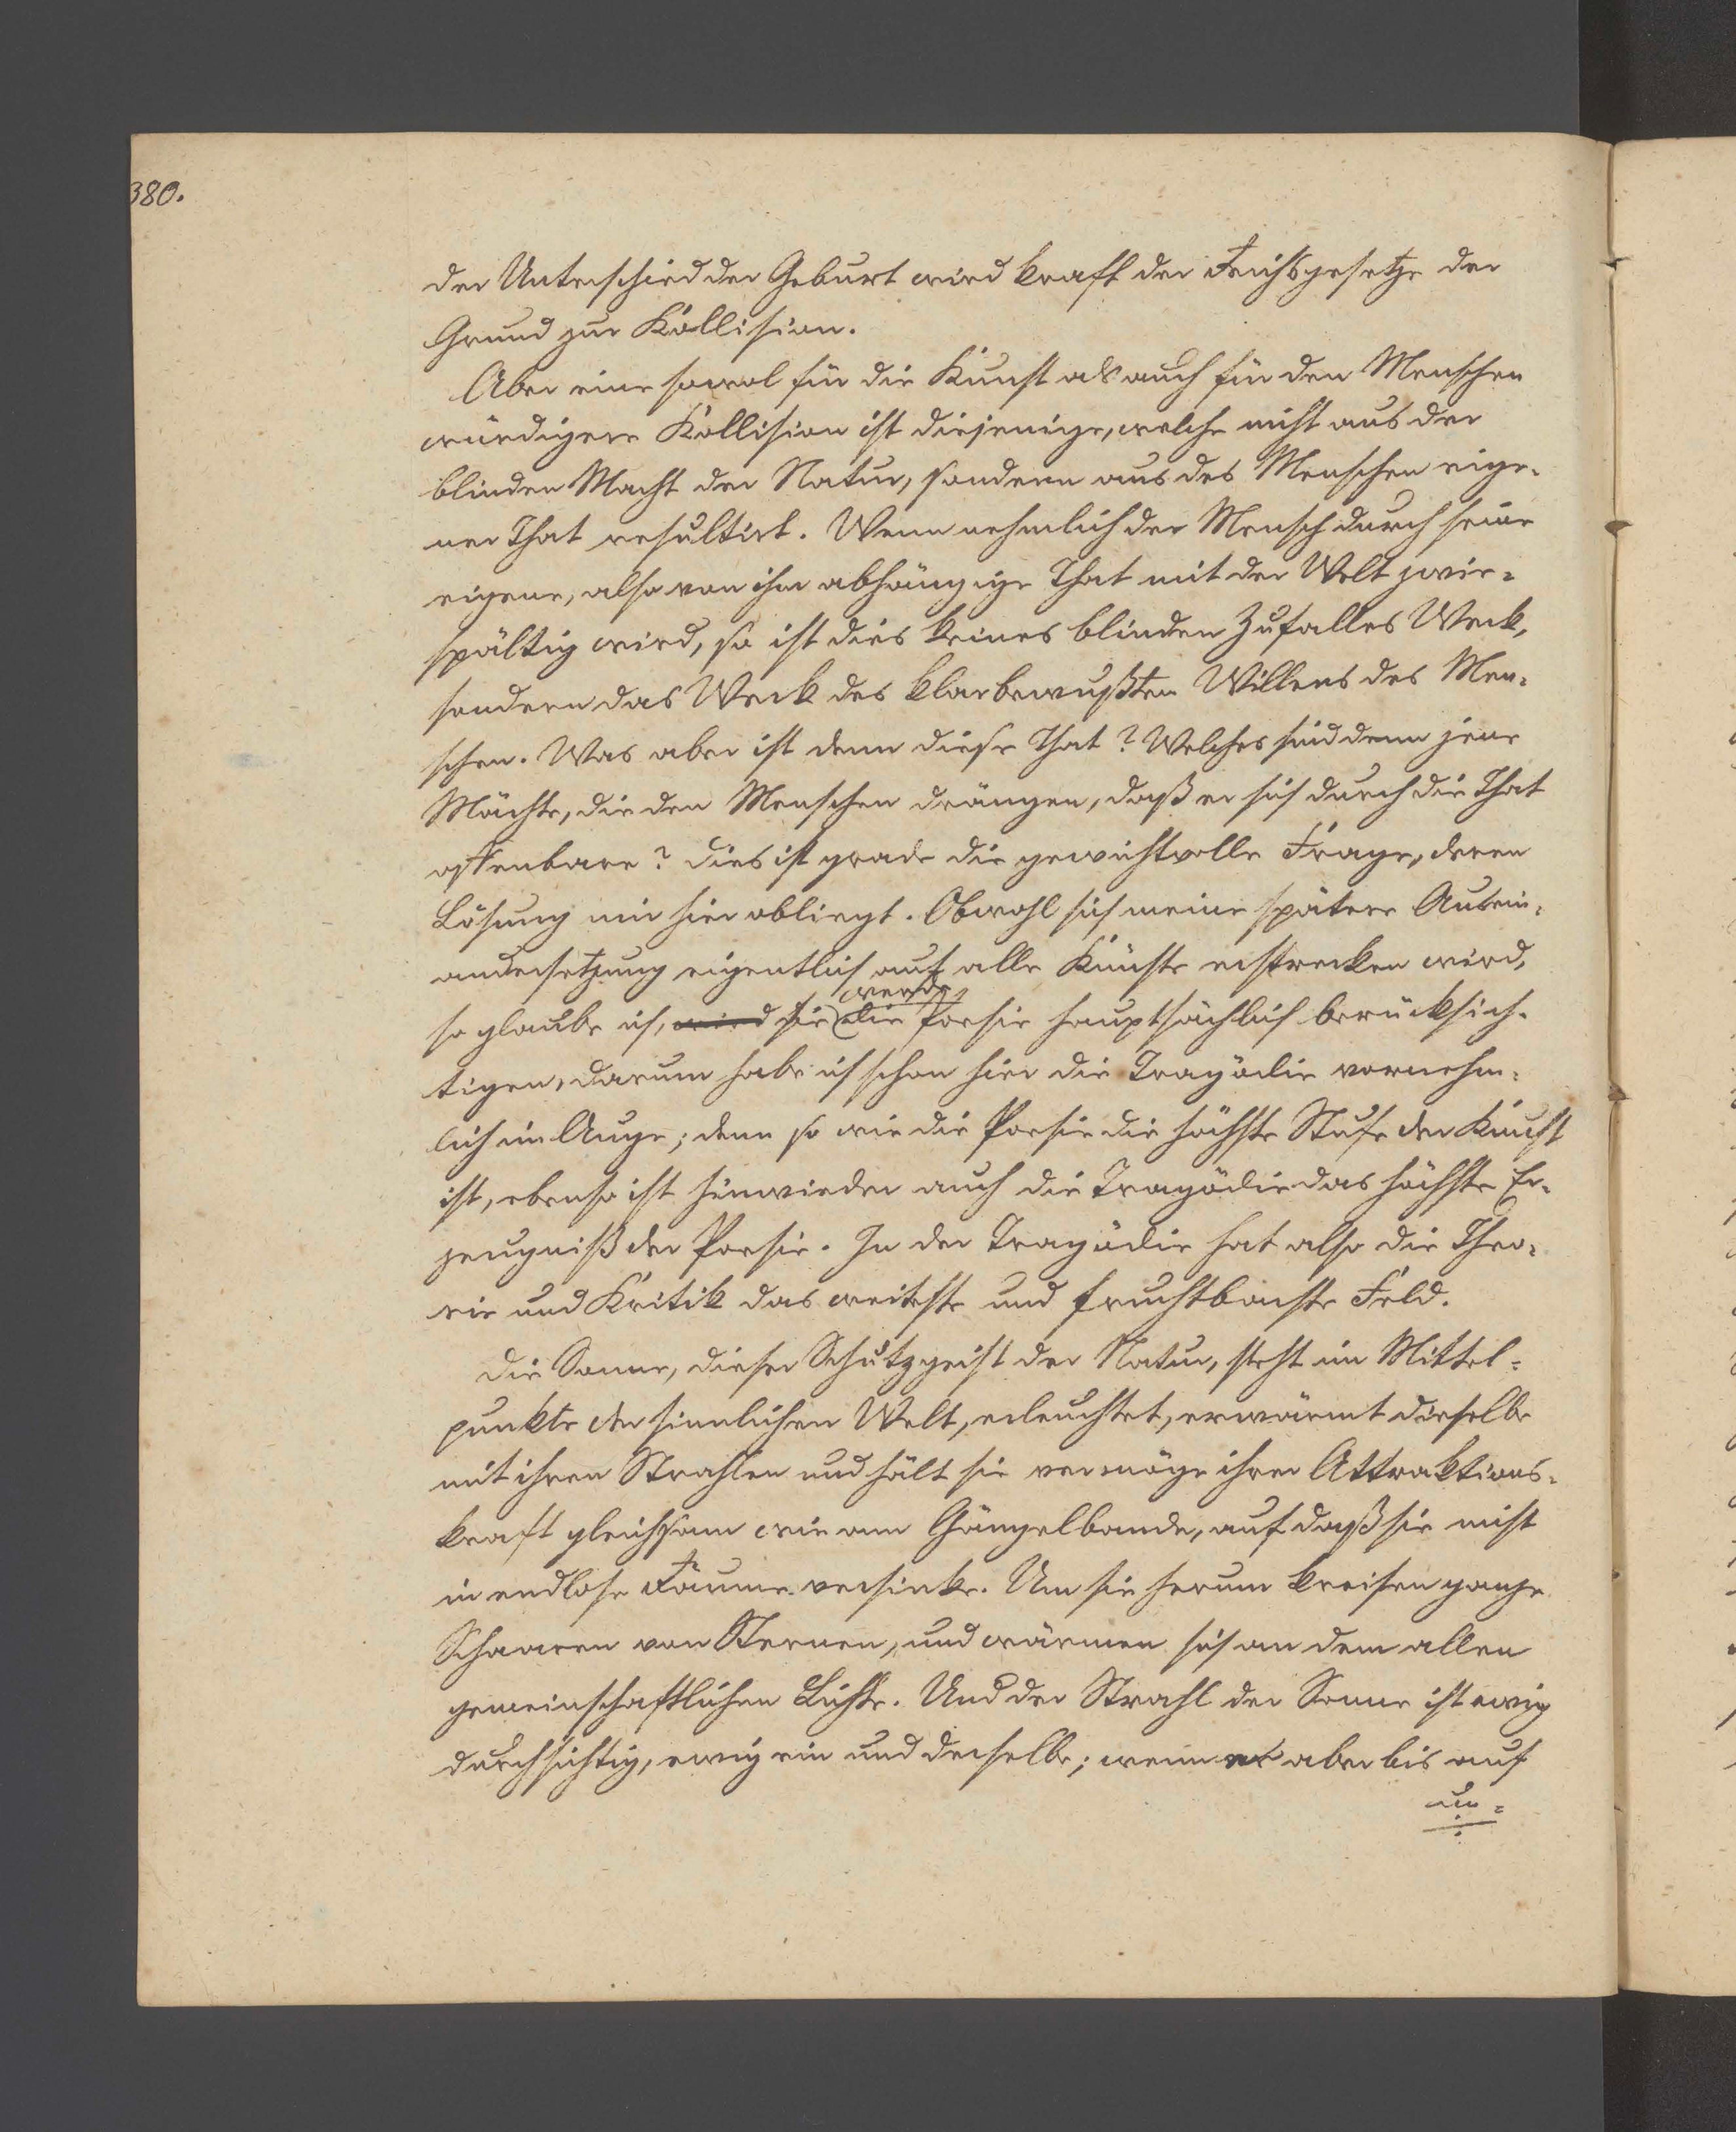 380.
der Unterschied der Geburt wird kraft der Reichsgesetze der
Grund zur Kollision.
Aber eine sowol für die Kunst als auch für den Menschen
würdigere Kollision ist diejenige, welche nicht aus der
blinden Macht der Natur, sondern aus des Menschen eige-
ner That resultirt. Wenn nehmlich der Mensch durch seine
eigene, also von ihm abhängige That mit der Welt zwie-
spältig wird, so ist dies keines blinden Zufalles Werk,
sondern das Werk des klarbewußten Willens des Men-
schen. Was aber ist denn diese That? Welches sind denn jene
Mächte, die den Menschen drängen, daß er sich durch die That
offenbare? Dies ist grade die gewichtvolle Frage, deren
Lösung mir hier obliegt. Obwohl sich meine spätere Ausein-
andersetzung eigentlich auf alle Künste erstrecken wird,
werde
so glaube ich, wird sie die Poesie hauptsächlich berücksich-
tigen, darum habe ich schon hier die Tragödie vornehm-
lich im Auge; denn so wie die Poesie die höchste Stufe der Kunst
ist, ebenso ist hinwieder auch die Tragödie das höchste Er-
zeugniß der Poesie. In der Tragödie hat also die Theo-
rie und Kritik das weiteste und fruchtbarste Feld.
Die Sonne, dieser Schutzgeist der Natur, steht im Mittel-
punkte der sinnlichen Welt, erleuchtet, erwärmt dieselbe
mit ihren Strahlen und hält sie vermöge ihrer Attraktions-
kraft gleichsam wie am Gängelbande, auf daß sie nicht
in endlose Räume versinke. Um sie herum kreisen ganze
Schaaren von Sternen, und wärmen sich an dem allen
gemeinschaftlichen Lichte. Und der Strahl der Sonne ist ewig
durchsichtig, ewig ein und derselbe; wenn er aber bis auf
un-